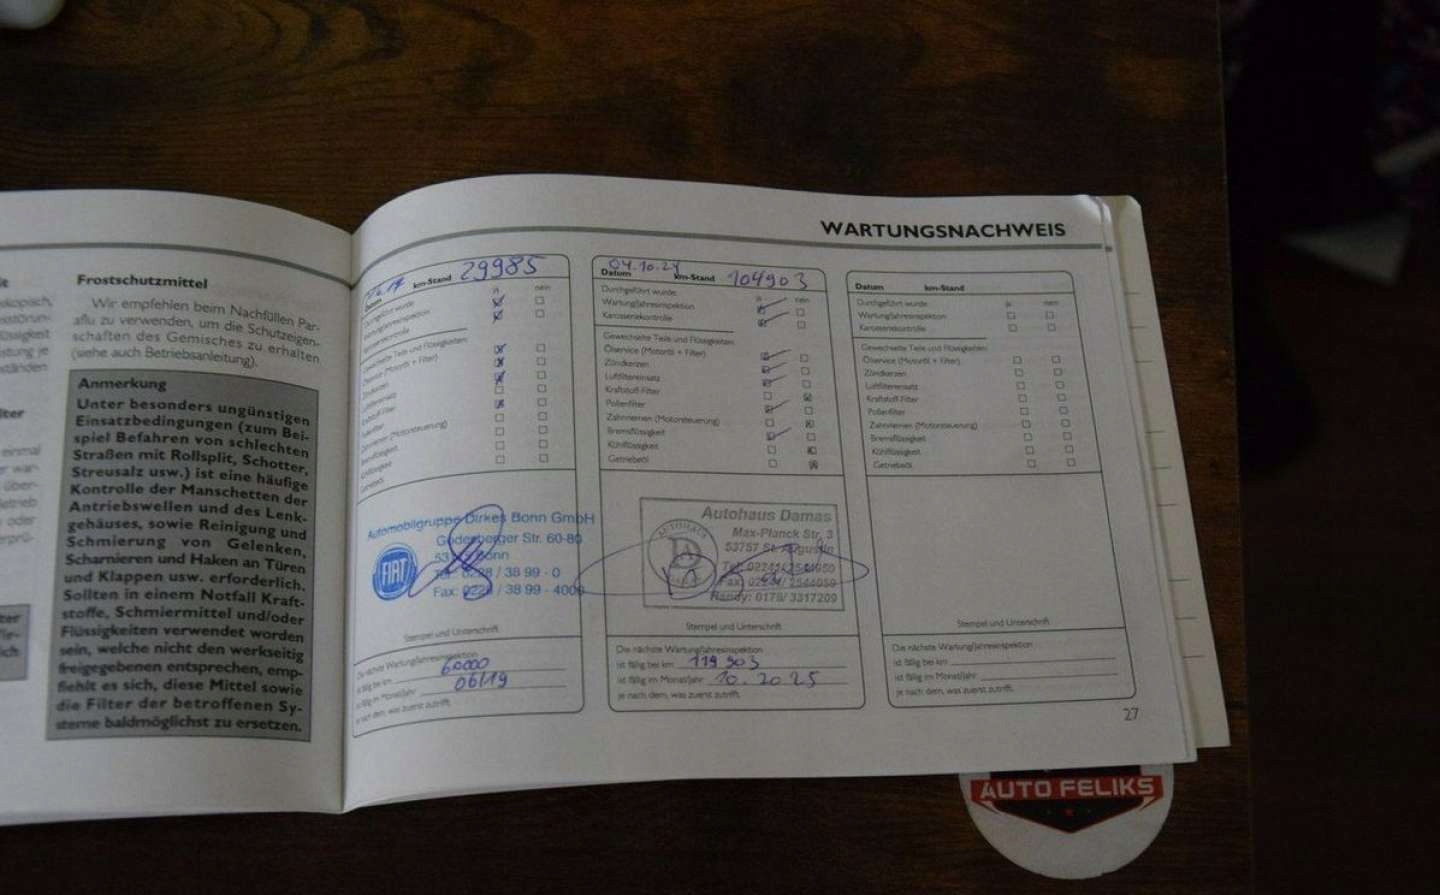 Frostschutzmittel
Wir empfehlen beim Nachfüllen Par-
aflu zu verwenden, um die Schutzeigen-
schaften des Gemisches zu erhalten
(siehe auch Betriebsanleitung).
Anmerkung
Unter besonders ungünstigen
Einsatzbedingungen (zum Bei-
spiel Befahren von schlechten
Straßen mit Rollsplit, Schotter,
Streusalz usw.) ist eine häufige
Kontrolle der Manschetten der
Antriebswellen und des Lenk-
gehäuses, sowie Reinigung und
Schmierung von Gelenken,
Scharnieren und Haken an Türen
und Klappen usw. erforderlich.
Sollten in einem Notfall Kraft-
stoffe, Schmiermittel und/oder
Flüssigkeiten verwendet worden
sein, welche nicht den werkseitig
freigegebenen entsprechen, emp-
fiehlt es sich, diese Mittel sowie
die Filter der betroffenen Sy-
steme baldmöglichst zu ersetzen.
WARTUNGSNACHWEIS
Datum km-Stand 29985
ja nein
Durchgeführt wurde:
Wartung/Jahresinspektion
Karosseriekontrolle
Gewechselte Teile und Flüssigkeiten:
Ölservice (Motoröl + Filter)
Zündkerzen
Luftfiltereinsatz
Kraftstoff-Filter
Pollenfilter
Zahnriemen (Motorsteuerung)
Bremsflüssigkeit
Kühlflüssigkeit
Getriebeöl
Automobilgruppe Dirkes Bonn GmbH
Godesberger Str. 60-80
Bonn
FIAT
Tel: 0228 / 38 99 - 0
Fax: 0228 / 38 99 - 4000
Stempel und Unterschrift
Die nächste Wartung/Jahresinspektion
ist fällig bei km 60000
ist fällig im Monat/Jahr 06/19
je nach dem, was zuerst zutrifft.
Datum 04.10.24 km-Stand 104903
ja nein
Durchgeführt wurde:
Wartung/Jahresinspektion
Karosseriekontrolle
Gewechselte Teile und Flüssigkeiten:
Ölservice (Motoröl + Filter)
Zündkerzen
Luftfiltereinsatz
Kraftstoff-Filter
Pollenfilter
Zahnriemen (Motorsteuerung)
Bremsflüssigkeit
Kühlflüssigkeit
Getriebeöl
Autohaus Damas
Max-Planck Str. 3
53757 St. Augustin
Handy: 0178/ 3317209
Stempel und Unterschrift
Die nächste Wartung/Jahresinspektion
ist fällig bei km 119903
ist fällig im Monat/Jahr 10.2025
je nach dem, was zuerst zutrifft.
Datum km-Stand
ja nein
Durchgeführt wurde:
Wartung/Jahresinspektion
Karosseriekontrolle
Gewechselte Teile und Flüssigkeiten:
Ölservice (Motoröl + Filter)
Zündkerzen
Luftfiltereinsatz
Kraftstoff-Filter
Pollenfilter
Zahnriemen (Motorsteuerung)
Bremsflüssigkeit
Kühlflüssigkeit
Getriebeöl
Stempel und Unterschrift
Die nächste Wartung/Jahresinspektion
ist fällig bei km
ist fällig im Monat/Jahr
je nach dem, was zuerst zutrifft.
27
AUTO FELIKS